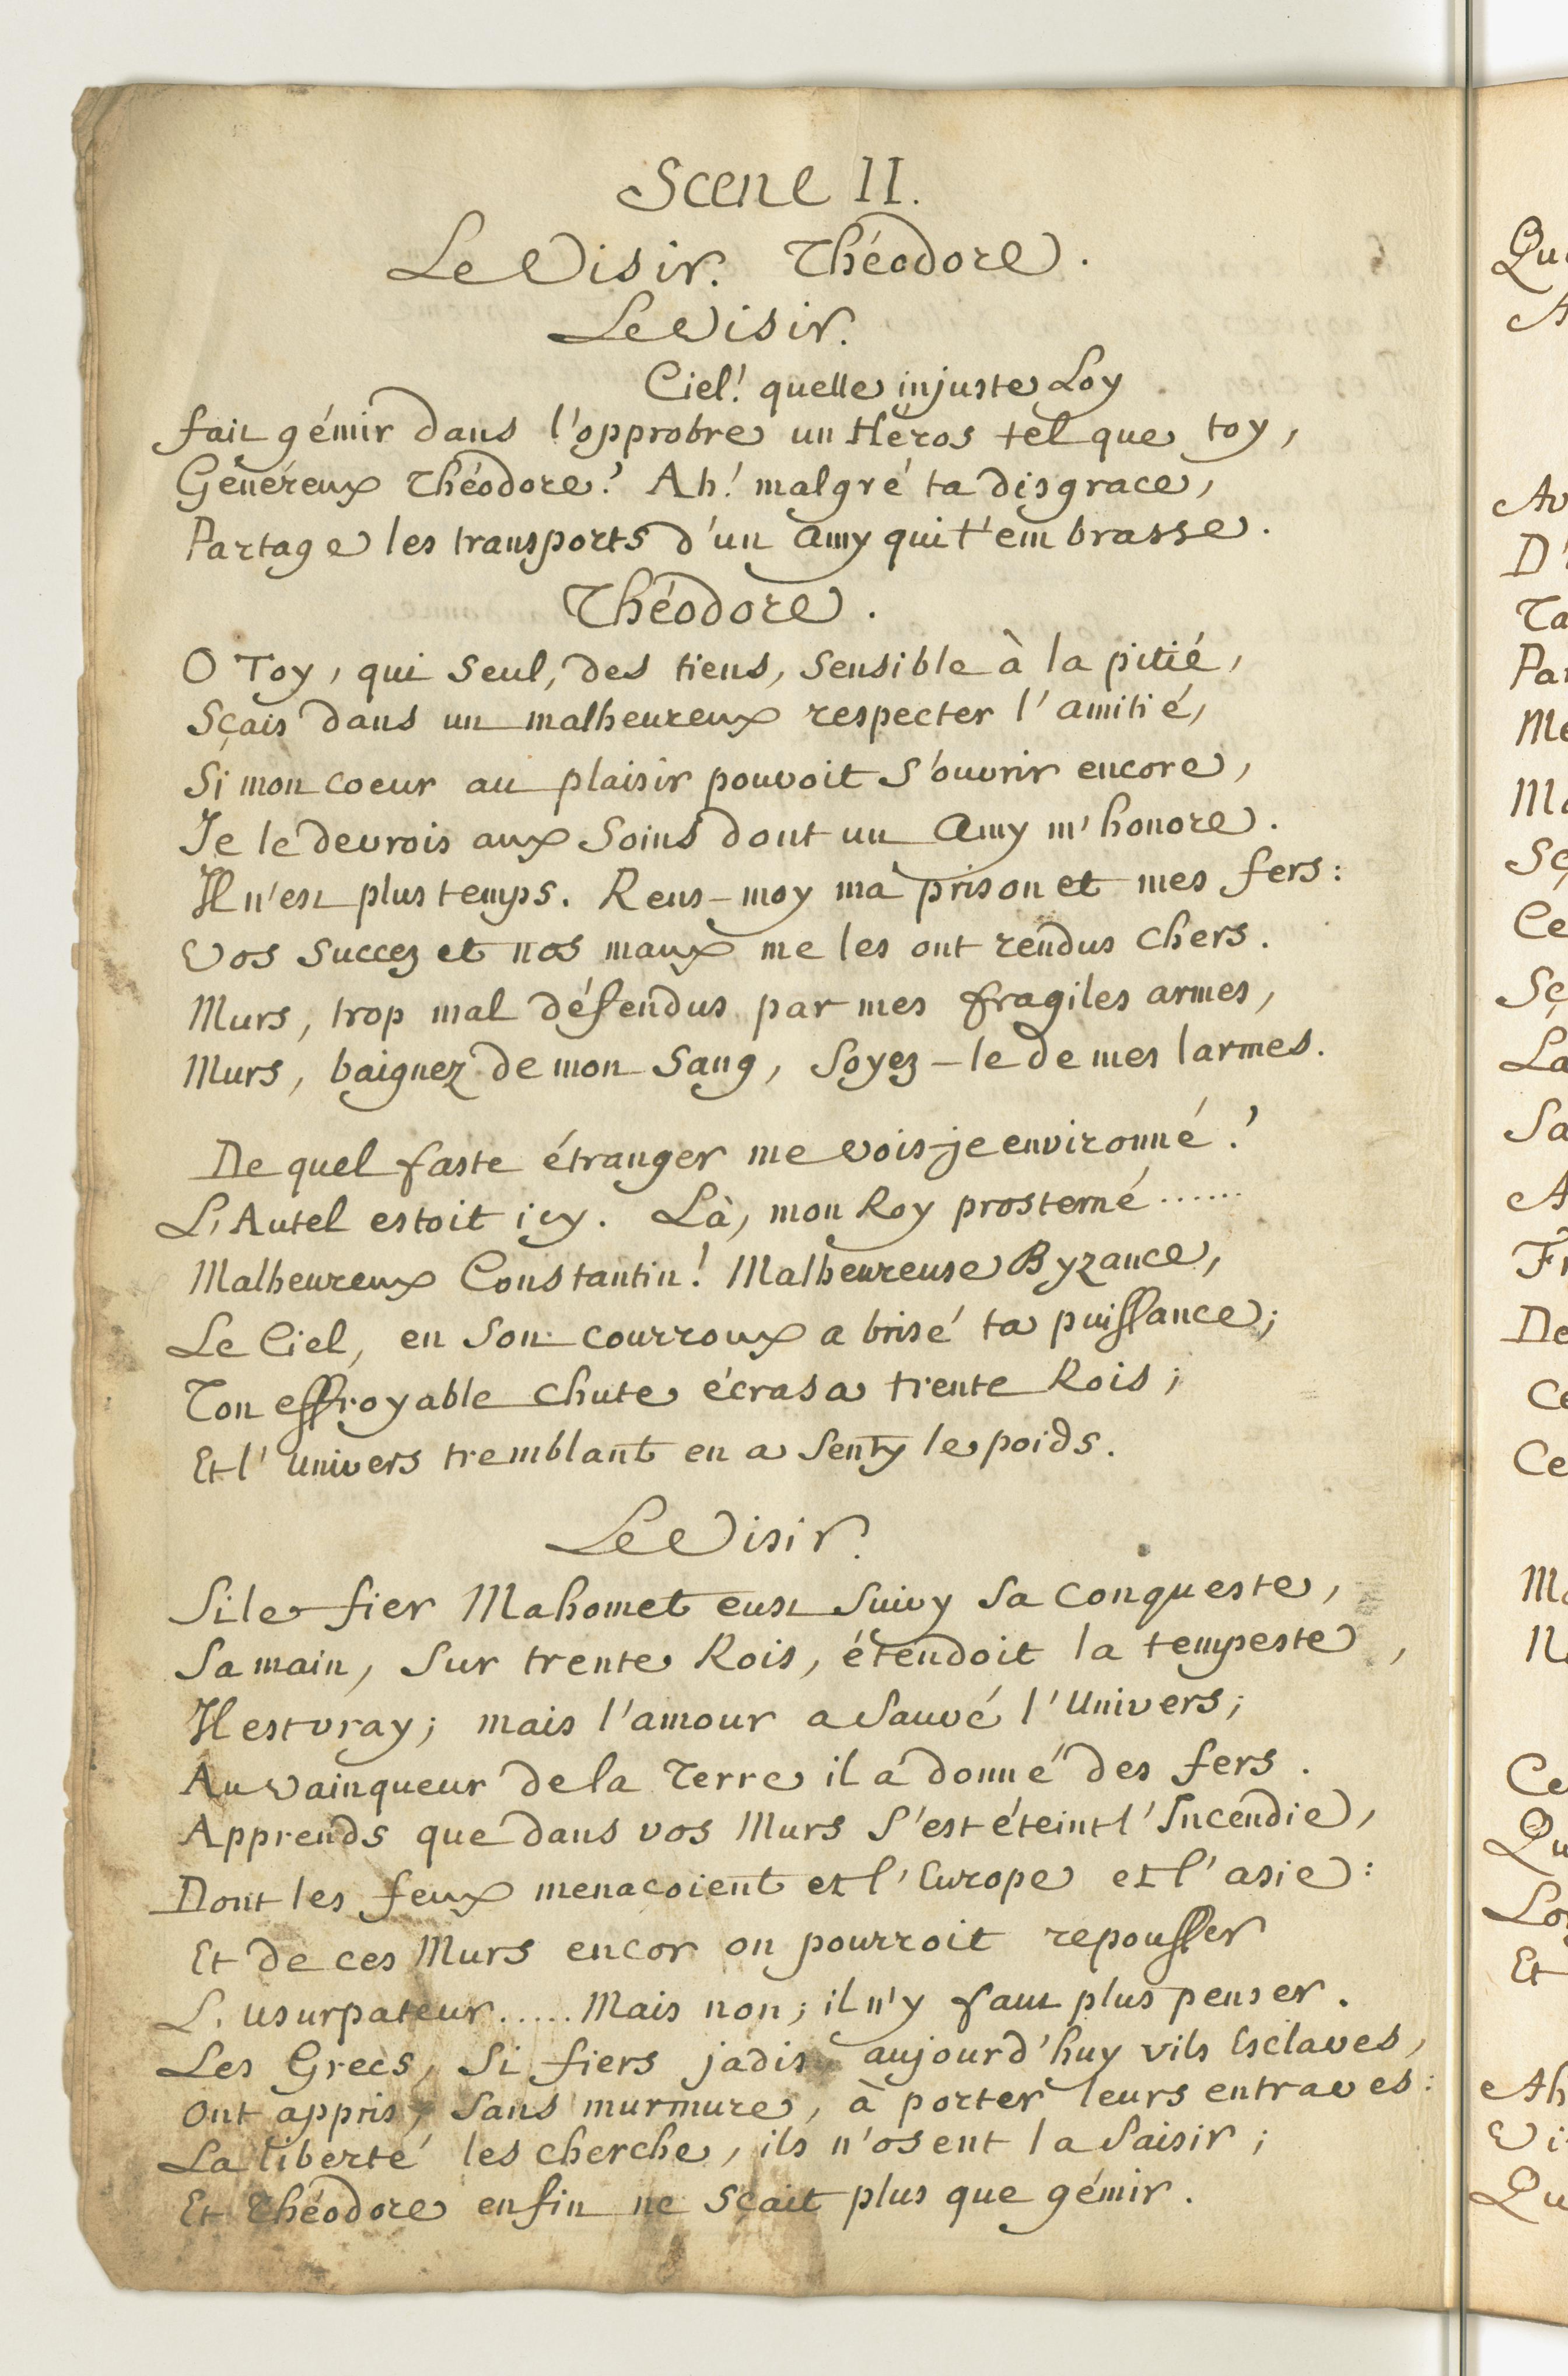 Scene II.
Le Visir. Théodore.
Le Visir.
Ciel! quelle injuste Loy
fait gémir dans l'opprobre un Héros tel que toy,
Généreux Théodore? Ah! malgré ta disgrace,
Partage les transports d'un amy qui t'embrasse.
Théodore.
O Toy, qui seul, des tiens, sensible à la pitié,
Sçais dans un malheureux respecter l'amitié,
Si mon coeur au plaisir pouvoit s'ouvrir encore,
Je le devrois aux soins dont un amy m'honore.
Il n'est plus temps. Rens-moy ma prison et mes fers:
Vos succez et nos maux me les ont rendus chers.
Murs, trop mal défendus par mes fragiles armes,
Murs, baignez de mon sang, soyez-le de mes larmes.
De quel faste étranger me vois-je environné?
L'Autel estoit icy. Là, mon Roy prosterné ......
Malheureux Constantin! Malheureuse Byzance,
Le Ciel, en son courroux a brisé ta puissance;
Ton effroyable chute écrasa trente Rois;
Et l'univers tremblant en a senty le poids.
Le Visir.
Si le fier Mahomet eust suivy sa conqueste,
Sa main, sur trente Rois, étendoit la tempeste,
Il est vray; mais l'amour a sauvé l'Univers;
Au vainqueur de la Terre il a donné des fers.
Apprends que dans vos Murs s'est éteint l'Incendie,
Dont les feux menaçoient et l'Europe et l'asie:
Et de ces Murs encor on pourroit repousser
L'usurpateur ..... Mais non; il n'y faut plus penser.
Les Grecs, si fiers jadis, aujourd'huy vils Esclaves,
Ont appris, sans murmure, à porter leurs entraves:
La liberté les cherche, ils n'osent la saisir;
Et Théodore enfin ne sçait plus que gémir.